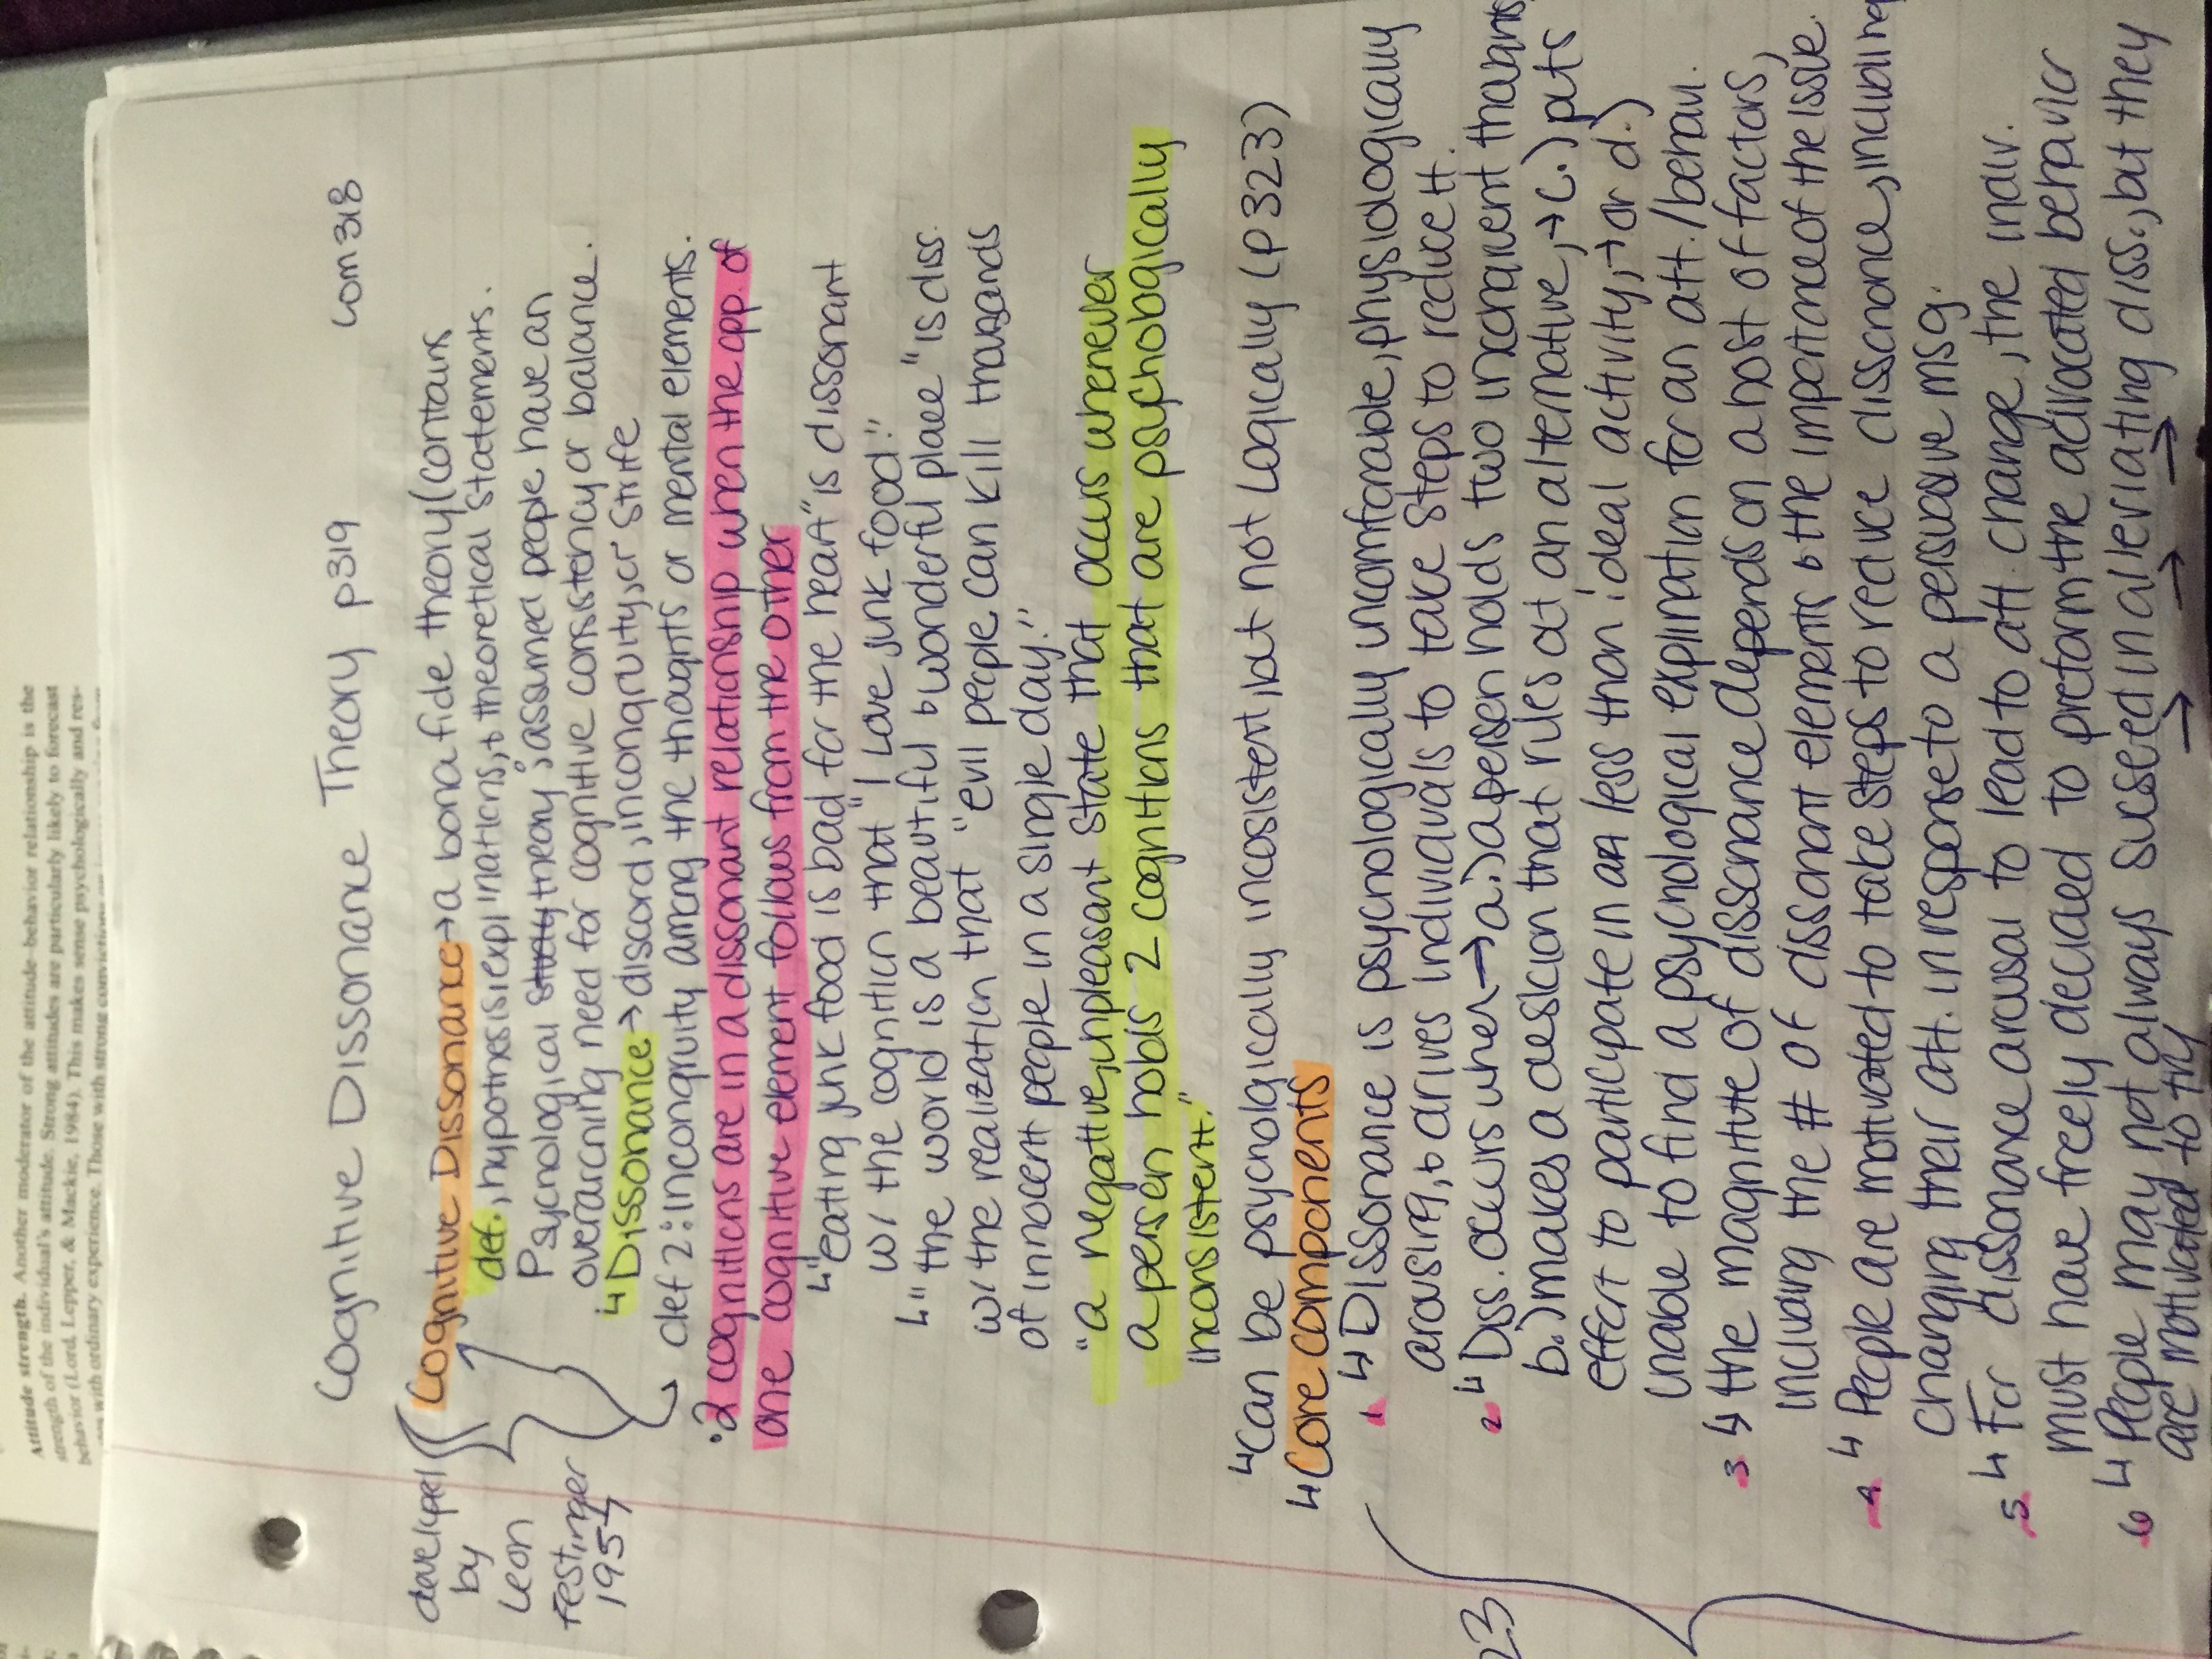 Attitude strength. Another moderator of the attitude-behavior relationship is the
strength of the individual's attitude. Strong attitudes are particularly likely to forecast
behavior (Lord, Lepper, & Mackie, 1984). This makes sense psychologically and res-
with ordinary experience. Those with strong convictions
Cognitive Dissonance Theory p319 com 318
developed
by
Leon
Festinger
1957
Cognitive Dissonance → a bona fide theory (contains
def., hypothesis, expl'inations, & theoretical statements.
Psychological study theory; assumed people have an
overarching need for cognitive consistency or balance.
↳ Dissonance → discord, incongruity, or strife
def 2: incongruity among the thoughts or mental elements.
• 2 cognitions are in a dissonant relationship when the opp. of
one cognitive element follows from the other
↳ "eating junk food is bad for the heart" is dissonant
w/ the cognition that "I love junk food."
↳ "the world is a beautiful & wonderful place" is diss.
w/ the realization that "evil people can kill thousands
of innocent people in a single day."
"a negative, unpleasant state that occurs whenever
a person holds 2 cognitions that are psychologically
inconsistent."
↳ Can be psychologically incosistent, but not logically (p 323)
↳ Core components
23
1 ↳ Dissonance is psychologically uncomforable, physiologically
arousing, & drives individuals to take steps to reduce it.
2 ↳ Diss. occurs when → a.) a person holds two incongruent thoughts
b.) makes a desicion that rules out an alternative, → c.) puts
effort to participate in an less than ideal activity, → or d.)
unable to find a psychological explination for an att./behavi.
3 ↳ the magnitute of dissonance depends on a host of factors,
including the # of dissonant elements & the importance of the issue.
4 ↳ People are motivated to take steps to reduce dissonance, including
changing their att. in response to a persuasive msg.
5 ↳ For dissonance arousal to lead to att change, the indiv.
must have freely decided to preform the advocated behavior
6 ↳ People may not always succeed in alleviating diss., but they
are motivated to try → → →